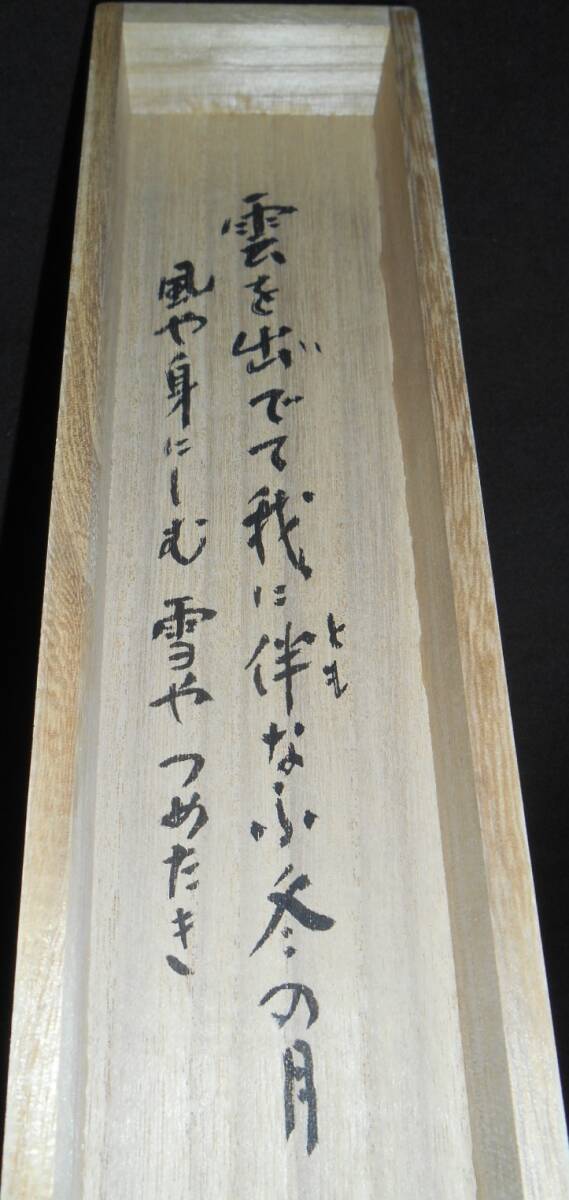 雲を出でて我に伴なふ冬の月
とも
風や身にしむ雪やつめたき